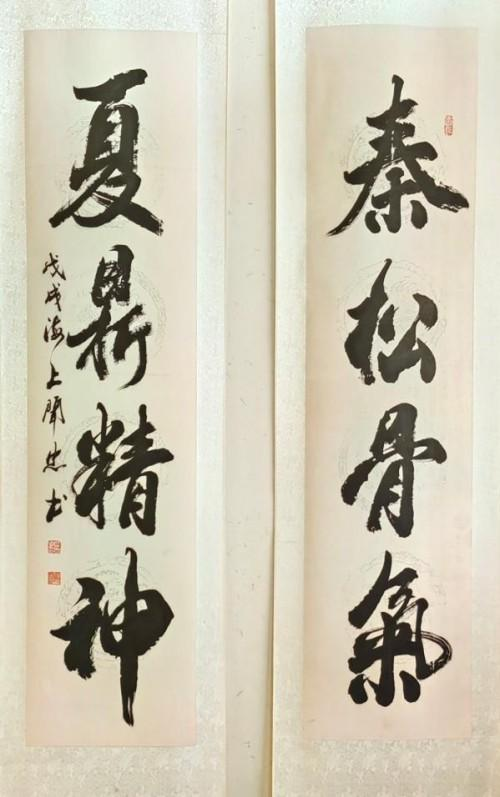 秦松骨氣
夏鼎精神
戊戌海上聞忠书